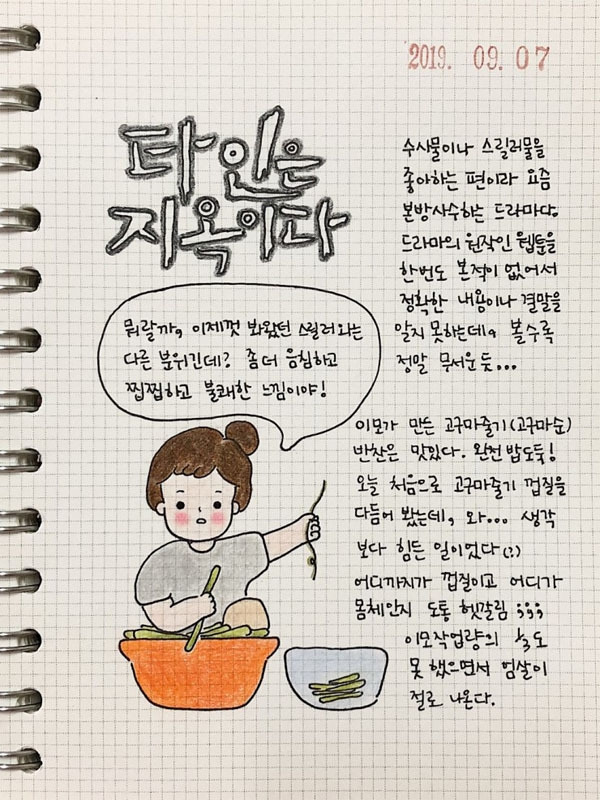 2019. 09. 07
타인은
지옥이다
수사물이나 스릴러물을
좋아하는 편이라 요즘
본방사수하는 드라마다.
드라마의 원작인 웹툰을
한번도 본적이 없어서
정확한 내용이나 결말을
알지 못하는데, 볼수록
정말 무서운 듯...
뭐랄까, 이제껏 봐왔던 스릴러와는
다른 분위긴데? 좀 더 음침하고
찝찝하고 불쾌한 느낌이야!
이모가 만든 고구마줄기(고구마순)
반찬은 맛있다. 완전 밥도둑!
오늘 처음으로 고구마줄기 껍질을
다듬어 봤는데, 와... 생각
보다 힘든 일이었다(!)
어디까지가 껍질이고 어디가
몸체인지 도통 헷갈림 ;;;
이모작업량의 ⅓도
못 했으면서 엄살이
절로 나온다.